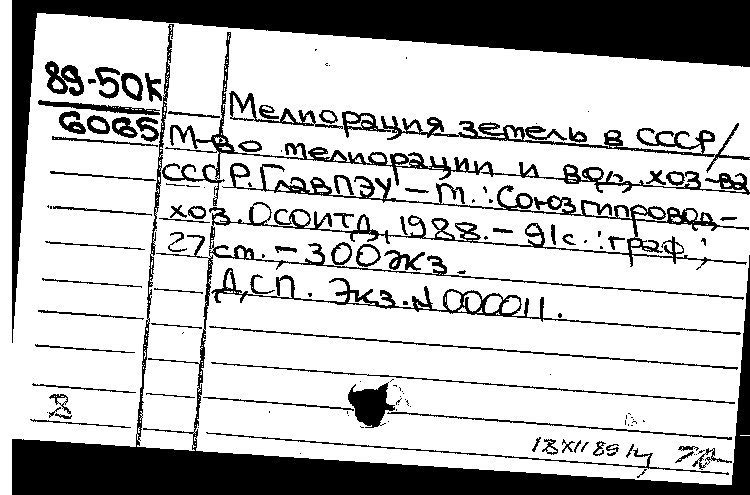 89-50К
6065
Мелиорация земель в СССР/
М-во мелиорации и вод. хоз-ва
СССР. ГлавПЭУ. - М.: Союзгипровод-
хоз. ОСОИТД, 1988. - 91с.: граф.;
27 см. - 300 экз.
ДСП. Экз. N 000011.
8
18 XII 89